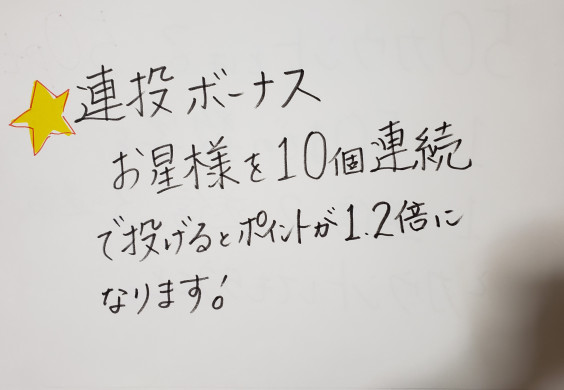 連投ボーナス
お星様を10個連続
で投げるとポイントが1.2倍に
なります!